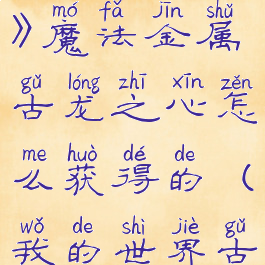 mó fǎ jīn shǔ
》魔法金属
gǔ lóng zhī xīn zěn
古龙之心怎
me huò dé de
么获得的（
wǒ de shì jiè gǔ
我的世界古